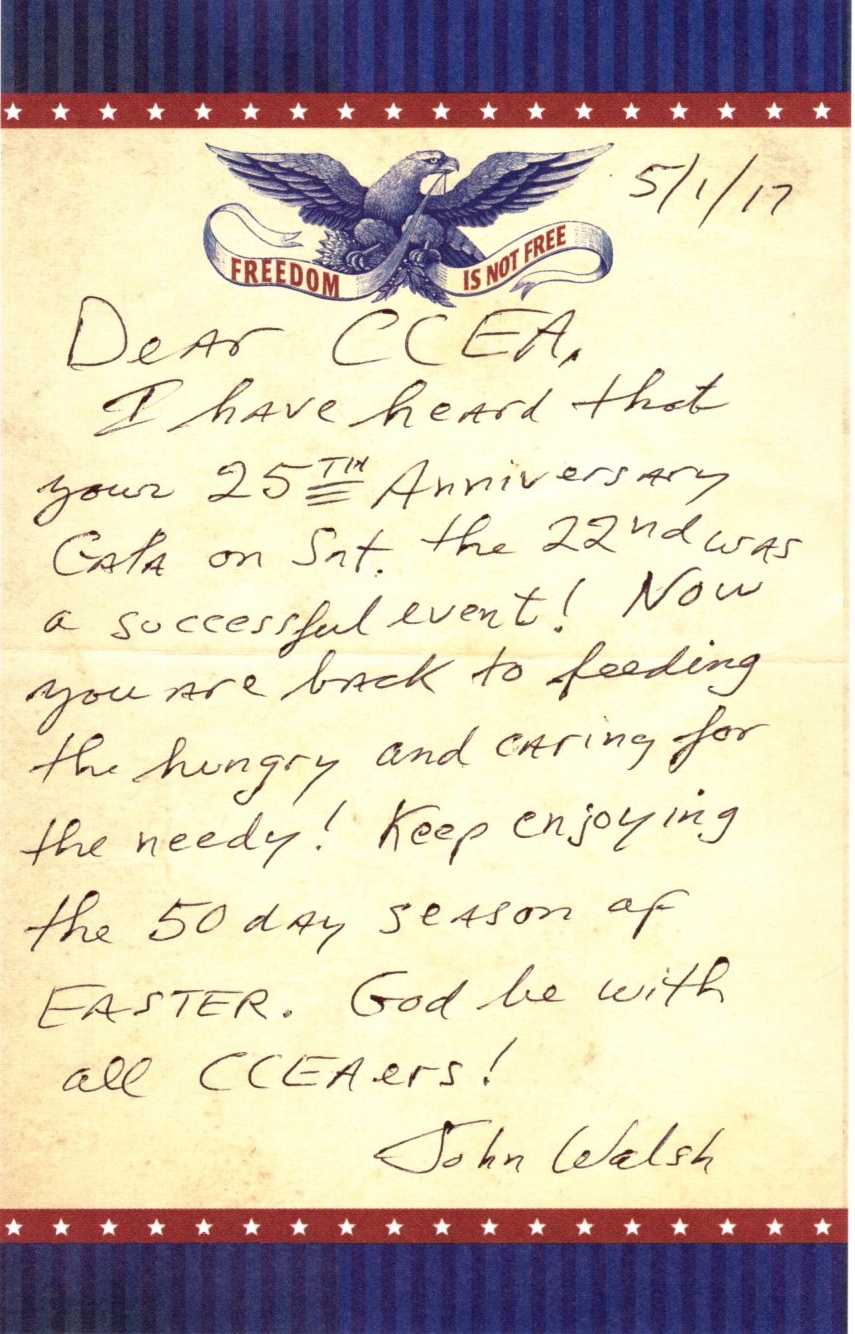 5/1/17
FREEDOM IS NOT FREE
Dear CCEA,
I have heard that
your 25TH Anniversary
Gala on Sat. the 22nd was
a successful event! Now
you are back to feeding
the hungry and caring for
the needy! Keep enjoying
the 50 day season of
EASTER. God be with
all CCEAers!
John Walsh